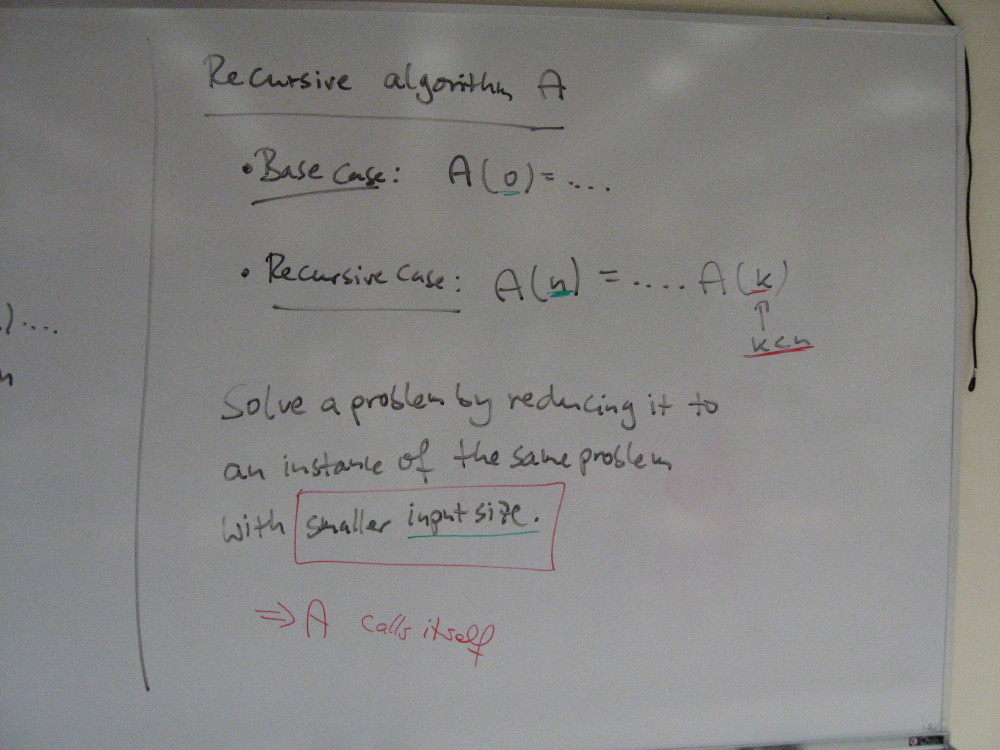 Recursive algorithm A
• Base case: A(0) = ....
• Recursive case: A(n) = .... A(k)
↑
k<n
) ....
n
Solve a problem by reducing it to
an instance of the same problem
with smaller input size.
⇒ A calls itself